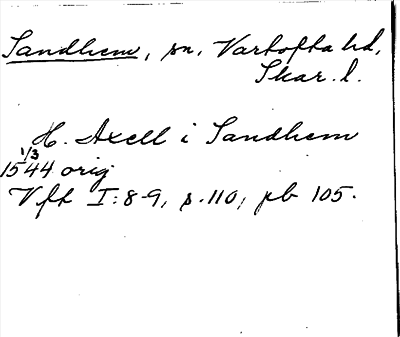 Sandhem, sn, Vartofta hd,
Skar. l.
H. Axell i Sandhem
1/3
1544 orig
Vft I:8-9, s.110, pb 105.